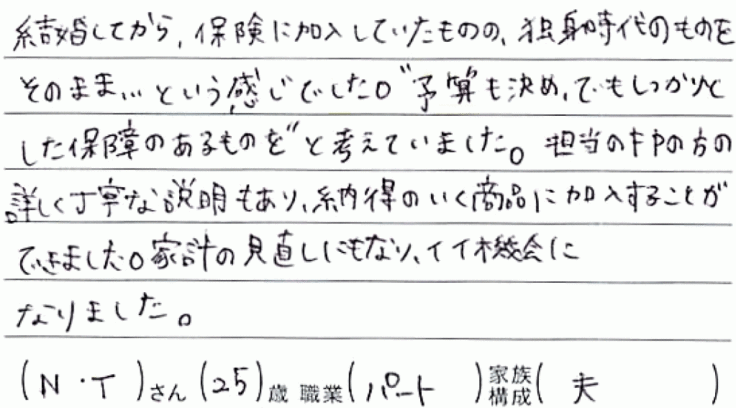 結婚してから、保険に加入していたものの、独身時代のものを
そのまま…という感じでした。"予算も決め、でもしっかりと
した保障のあるものを"と考えていました。担当のFPの方の
詳しく丁寧な説明もあり、納得のいく商品に加入することが
できました。家計の見直しにもなり、イイ機会に
なりました。
(N・T)さん(25)歳 職業(パート)家族構成(夫)